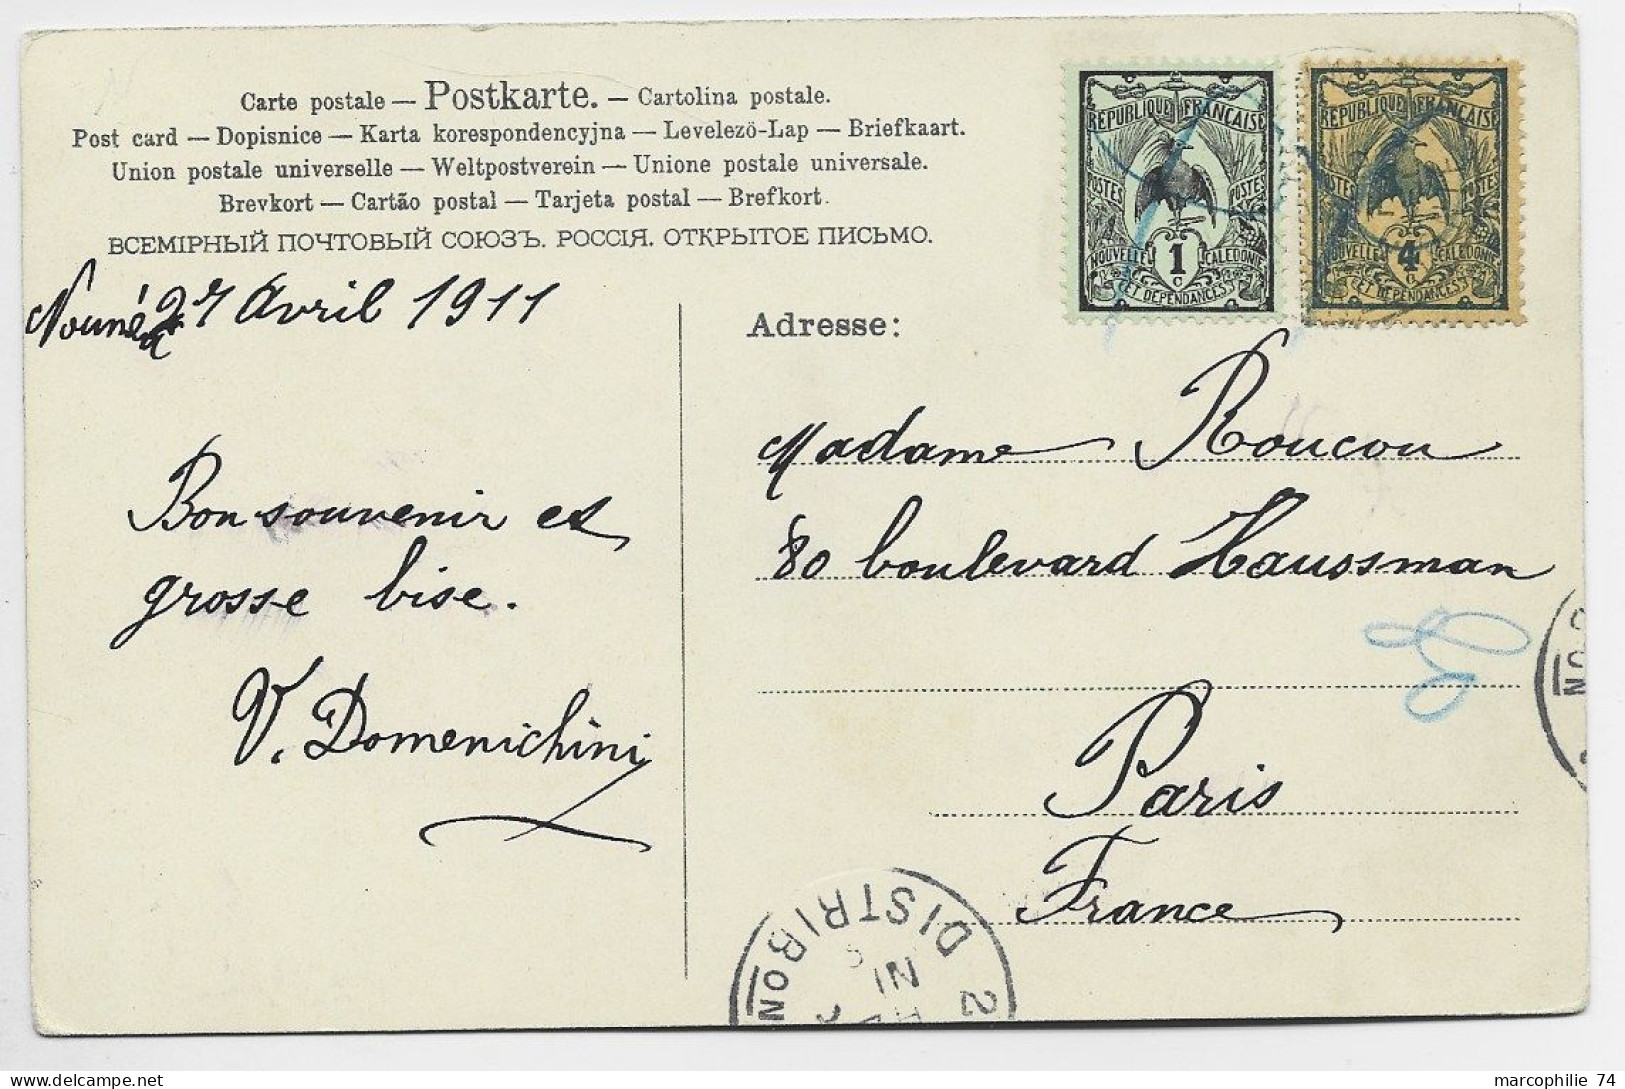 Carte postale — Postkarte. — Cartolina postale.
Post card — Dopisnice — Karta korespondencyjna — Levelezö-Lap — Briefkaart.
Union postale universelle — Weltpostverein — Unione postale universale.
Brevkort — Cartão postal — Tarjeta postal — Brefkort.
ВСЕМІРНЫЙ ПОЧТОВЫЙ СОЮЗЪ. РОССІЯ. ОТКРЫТОЕ ПИСЬМО.
REPUBLIQUE FRANCAISE
POSTES POSTES
1 c
NOUVELLE CALEDONIE
ET DEPENDANCES
REPUBLIQUE FRANCAISE
POSTES POSTES
4 c
NOUVELLE CALEDONIE
ET DEPENDANCES
Nouméa 27 Avril 1911
Bon souvenir et
grosse bise.
V. Domenichini
Adresse:
Madame Roucou
80 boulevard Haussman
Paris
France
2 DISTRIBON
marcophilie 74